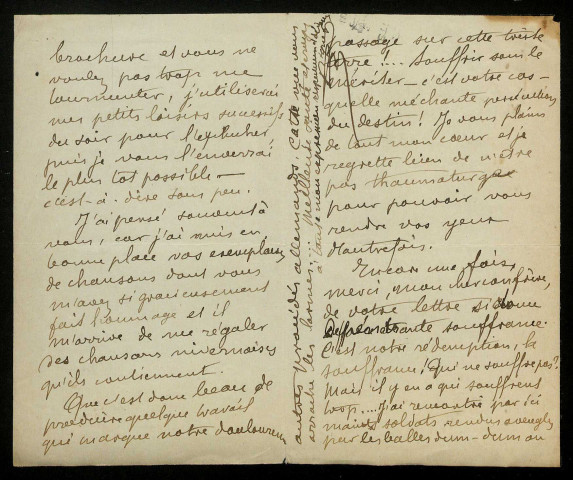 brochure et vous ne
voulez pas trop me
tourmenter, j'utiliserai
mes petits loisirs successifs
du soir pour l'éplucher
puis je vous l'enverrai
le plus tôt possible -
c'est-à-dire sous peu.
J'ai pensé souvent à
vous, car j'ai mis en
bonne place vos exemplaires
de chansons dont vous
m'avez si gracieusement
fait hommage et il
m'arrive de me régaler
des chansons nivernaises
qu'ils contiennent.
Que c'est donc beau de
produire quelque travail
qui marque notre douloureux
passage sur cette triste
terre !.... Souffrir sans le
mériter - c'est votre cas -
quelle méchante
du destin ! Je vous plains
de tout mon cœur et je
regrette bien de n'être
pas thaumaturge
pour pouvoir vous
rendre vos yeux
d'autrefois.
Encore une fois,
merci, mon cher confrère,
de votre lettre si
souffrance.
C'est notre rédemption, la
souffrance ! Qui ne souffre pas ?
Mais il y en a qui souffrent
trop.... J'ai rencontré par ici
maints soldats rendus aveugles
par les balles dum-dum ou
autres procédés allemands. Cette vue vous
arrache les larmes... Meilleure santé et croyez
à toute mon expression